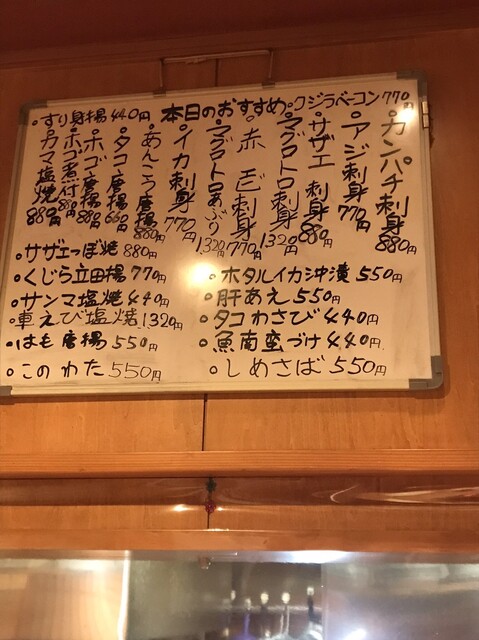 本日のおすすめ
。クジラベーコン770円
。すり身揚440円
。カンパチ刺身880円
。アジ刺身770円
。サザエ刺身880円
。マグロトロ刺身1320円
。赤エビ刺身770円
。マグロトロあぶり1320円
。イカ刺身770円
。あんこう唐揚880円
。タコ唐揚660円
。ホゴ唐揚880円
。ホゴ煮付880円
。カマ塩焼880円
。サザエつぼ焼880円
。くじら立田揚770円
。サンマ塩焼440円
。車えび塩焼1320円
。はも唐揚550円
。このわた550円
。ホタルイカ沖漬550円
。肝あえ550円
。タコわさび440円
。魚南蛮づけ440円
。しめさば550円